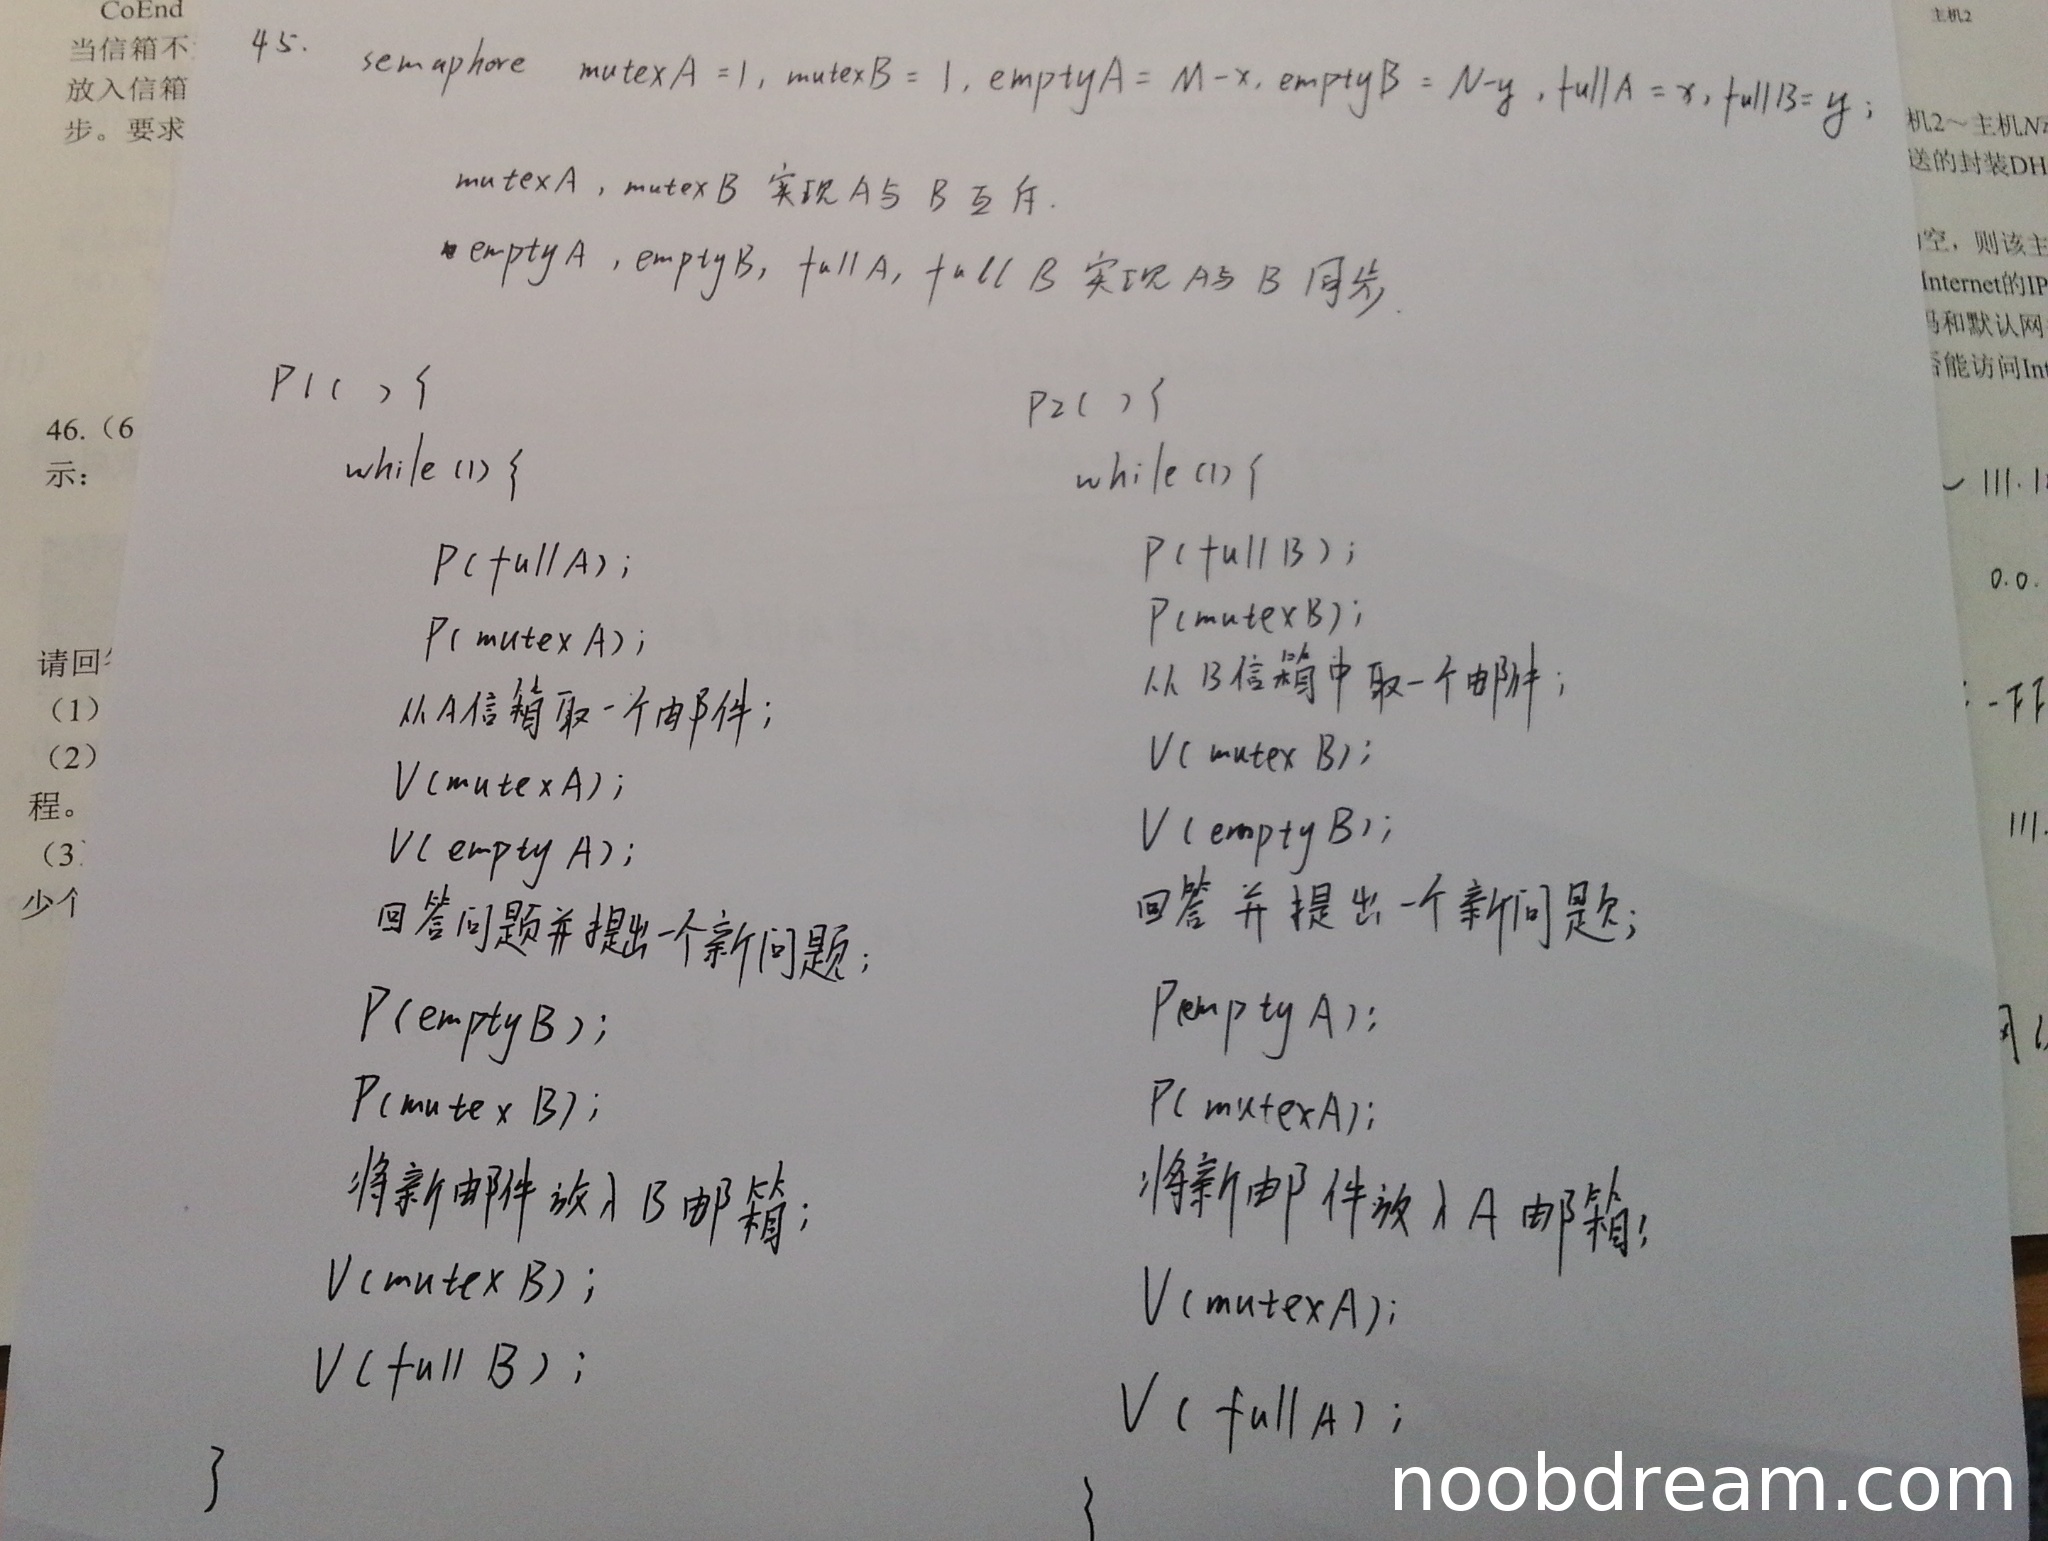 CoEnd
当信箱不
放入信箱
步。要求
45.
semaphore mutexA=1, mutexB=1, emptyA=M-x, emptyB=N-y, fullA=x, fullB=y;
mutexA, mutexB 实现A与B互斥.
emptyA, emptyB, fullA, fullB 实现A与B同步.
P1( ){
while(1){
P(fullA);
P(mutexA);
从A信箱取一个邮件;
V(mutexA);
V(emptyA);
回答问题并提出一个新问题;
P(emptyB);
P(mutexB);
将新邮件放入B邮箱;
V(mutexB);
V(fullB);
}
P2( ){
while(1){
P(fullB);
P(mutexB);
从B信箱中取一个邮件;
V(mutexB);
V(emptyB);
回答并提出一个新问题;
P(emptyA);
P(mutexA);
将新邮件放入A邮箱;
V(mutexA);
V(fullA);
}
46.（6
示：
请回
（1）
（2）
程。
（3
少个
主机2
机2～主机N
送的封装DH
空，则该主
Internet的IP
码和默认网
否能访问Int
111.1
0.0.
-FF
111.
noobdream.com